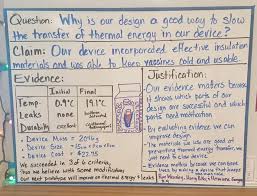 Question: Why is our design a good way to slow
the transfer of thermal energy in our device?
Claim: Our device incorporated effective insulation
materials and was able to keep vaccines cold and usable.
Evidence:
Initial Final
Temp. 0.9°C 19.1°C
Leaks none
Durability excellent
• Device Mass =
• Device Size =
• Device Cost = $22.75
We succeeded in 3 of 6 criteria,
thus we believe with some modification
our next prototype will improve on thermal energy & leaks
Justification:
Our evidence matters because
it shows which parts of our
design are successful and which
parts need modification.
• By evaluating evidence we can
improve design.
• The materials we use are good at
preventing thermal energy transfer, we
just need to close device.
• Evidence matters because we can save
lives by making a device that